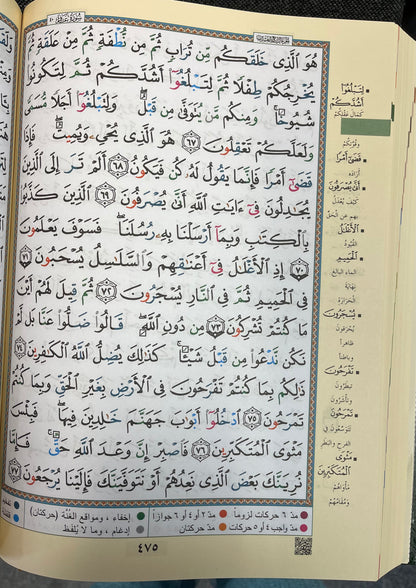 سُورَةُ غَافِرٍ ٤٠
هُوَ ٱلَّذِى خَلَقَكُم مِّن تُرَابٍ ثُمَّ مِن نُّطْفَةٍ ثُمَّ مِنْ عَلَقَةٍ ثُمَّ
يُخْرِجُكُمْ طِفْلًا ثُمَّ لِتَبْلُغُوٓا۟ أَشُدَّكُمْ ثُمَّ لِتَكُونُوا۟
شُيُوخًا ۚ وَمِنكُم مَّن يُتَوَفَّىٰ مِن قَبْلُ ۖ وَلِتَبْلُغُوٓا۟ أَجَلًا مُّسَمًّى
وَلَعَلَّكُمْ تَعْقِلُونَ ٦٧ هُوَ ٱلَّذِى يُحْىِۦ وَيُمِيتُ ۖ فَإِذَا
قَضَىٰٓ أَمْرًا فَإِنَّمَا يَقُولُ لَهُۥ كُن فَيَكُونُ ٦٨ أَلَمْ تَرَ إِلَى ٱلَّذِينَ
يُجَٰدِلُونَ فِىٓ ءَايَٰتِ ٱللَّهِ أَنَّىٰ يُصْرَفُونَ ٦٩ ٱلَّذِينَ كَذَّبُوا۟
بِٱلْكِتَٰبِ وَبِمَآ أَرْسَلْنَا بِهِۦ رُسُلَنَا ۖ فَسَوْفَ يَعْلَمُونَ
٧٠ إِذِ ٱلْأَغْلَٰلُ فِىٓ أَعْنَٰقِهِمْ وَٱلسَّلَٰسِلُ يُسْحَبُونَ ٧١
فِى ٱلْحَمِيمِ ثُمَّ فِى ٱلنَّارِ يُسْجَرُونَ ٧٢ ثُمَّ قِيلَ لَهُمْ أَيْنَ
مَا كُنتُمْ تُشْرِكُونَ ٧٣ مِن دُونِ ٱللَّهِ ۖ قَالُوا۟ ضَلُّوا۟ عَنَّا بَل لَّمْ
نَكُن نَّدْعُوا۟ مِن قَبْلُ شَيْـًٔا ۚ كَذَٰلِكَ يُضِلُّ ٱللَّهُ ٱلْكَٰفِرِينَ ٧٤
ذَٰلِكُم بِمَا كُنتُمْ تَفْرَحُونَ فِى ٱلْأَرْضِ بِغَيْرِ ٱلْحَقِّ وَبِمَا كُنتُمْ
تَمْرَحُونَ ٧٥ ٱدْخُلُوٓا۟ أَبْوَٰبَ جَهَنَّمَ خَٰلِدِينَ فِيهَا ۖ فَبِئْسَ
مَثْوَى ٱلْمُتَكَبِّرِينَ ٧٦ فَٱصْبِرْ إِنَّ وَعْدَ ٱللَّهِ حَقٌّ ۚ فَإِمَّا
نُرِيَنَّكَ بَعْضَ ٱلَّذِى نَعِدُهُمْ أَوْ نَتَوَفَّيَنَّكَ فَإِلَيْنَا يُرْجَعُونَ ٧٧
لِتَبْلُغُوٓا۟
أَشُدَّكُمْ
كَمَالَ عَقْلِكُمْ
وقُوَّتِكُمْ
قَضَىٰٓ أَمْرًا
أرَادَهُ
أَنَّىٰ يُصْرَفُونَ
كَيْفَ يُعْدَلُ
بِهِم عن الحَقِّ
ٱلْأَغْلَٰلُ
القُيُودُ
ٱلْحَمِيمِ
الماء البالغ
نِهايَةَ
الحَرَارَةِ
يُسْجَرُونَ
يُحْرَقُونَ
ظاهراً
وباطناً
تَفْرَحُونَ
تَبْطَرُونَ
وتَأْشَرُونَ
تَمْرَحُونَ
تَتَوَسَّعُونَ في
الفَرَحِ والبَطَرِ
مَثْوَى
ٱلْمُتَكَبِّرِينَ
مَأْوَاهُمْ
ومُقَامُهُمْ
مدّ ٦ حركات لزوماً مدّ ٢ أو ٤ أو ٦ جوازاً إخفاء، ومواقع الغُنَّة (حركتان)
مدّ واجب ٤ أو ٥ حركات مدّ حركتان إدغام، وما لا يُلفَظ
٤٧٥